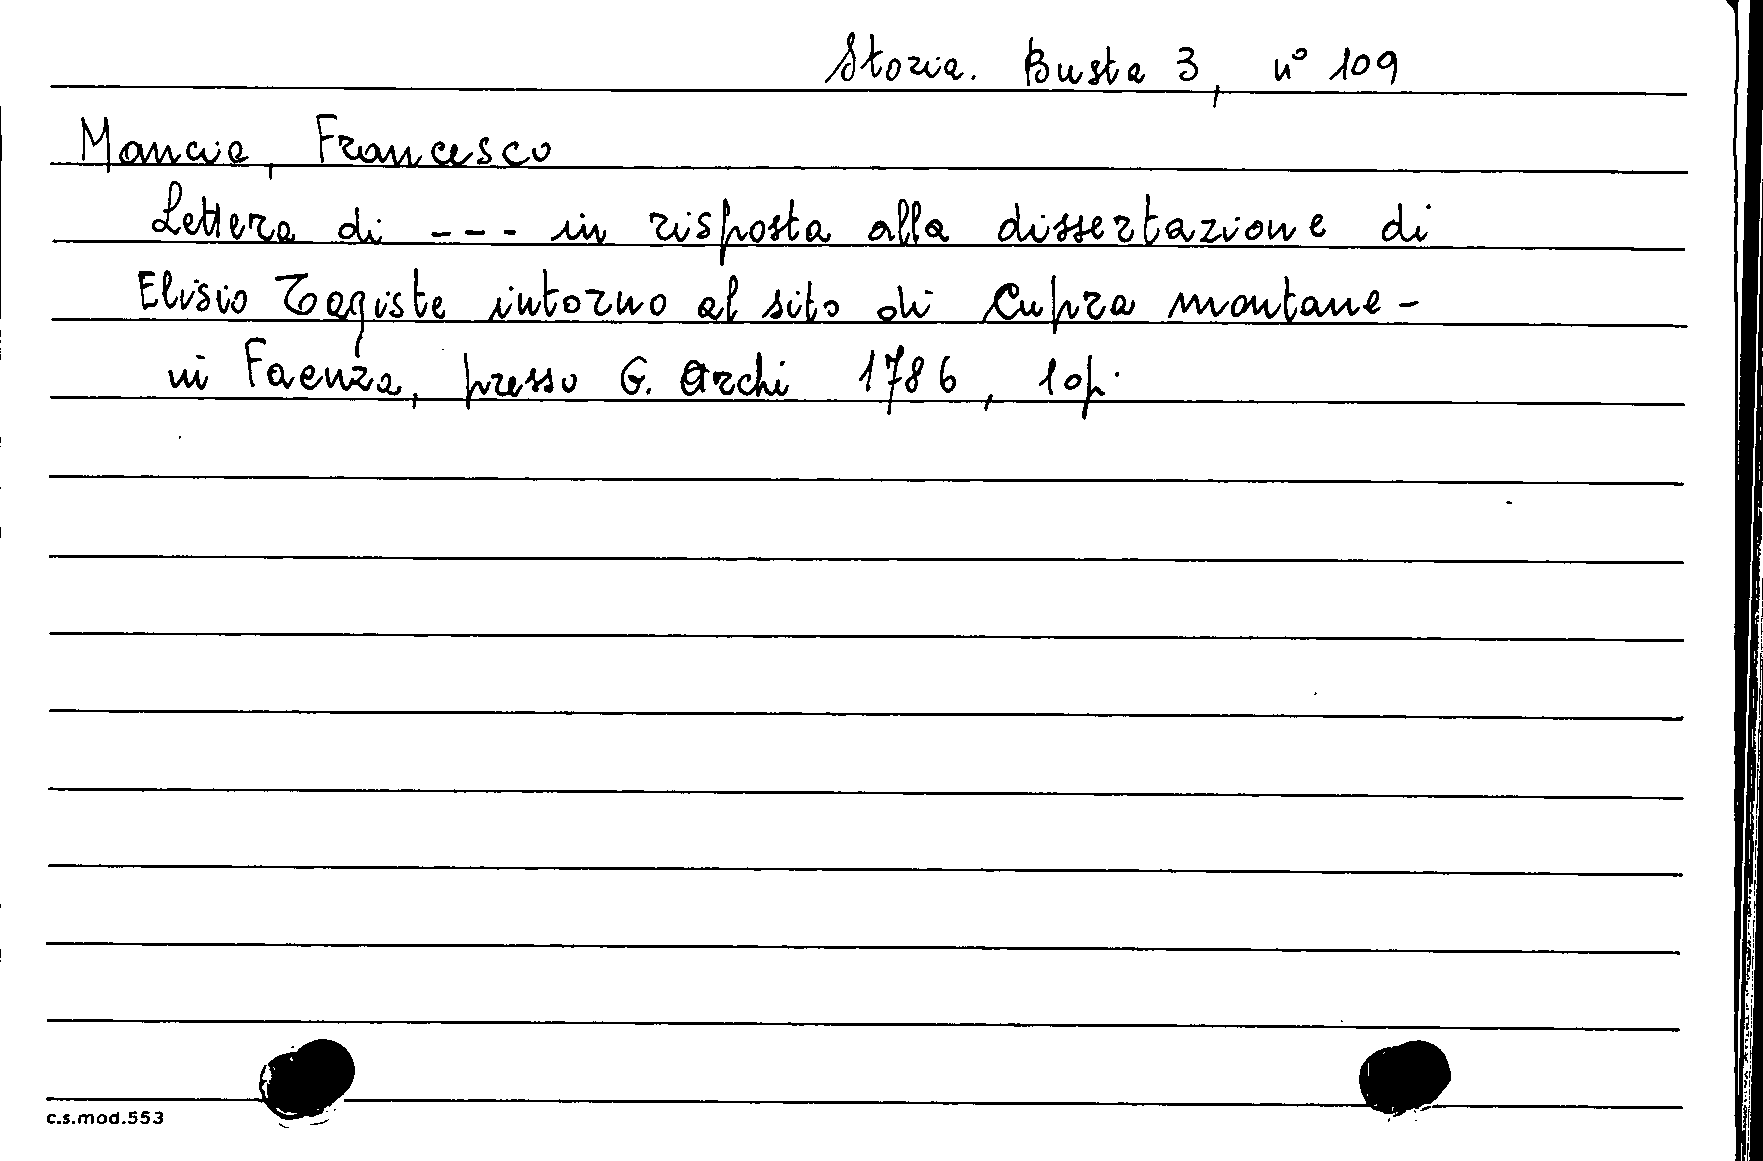 Storia. Busta 3, n° 109
Mancia, Francesco
Lettera di --- in risposta alla dissertazione di
Elisio Tegiste intorno al sito di Cupra montana -
in Faenza, presso G. Archi 1786, 10p.
c.s.mod.553